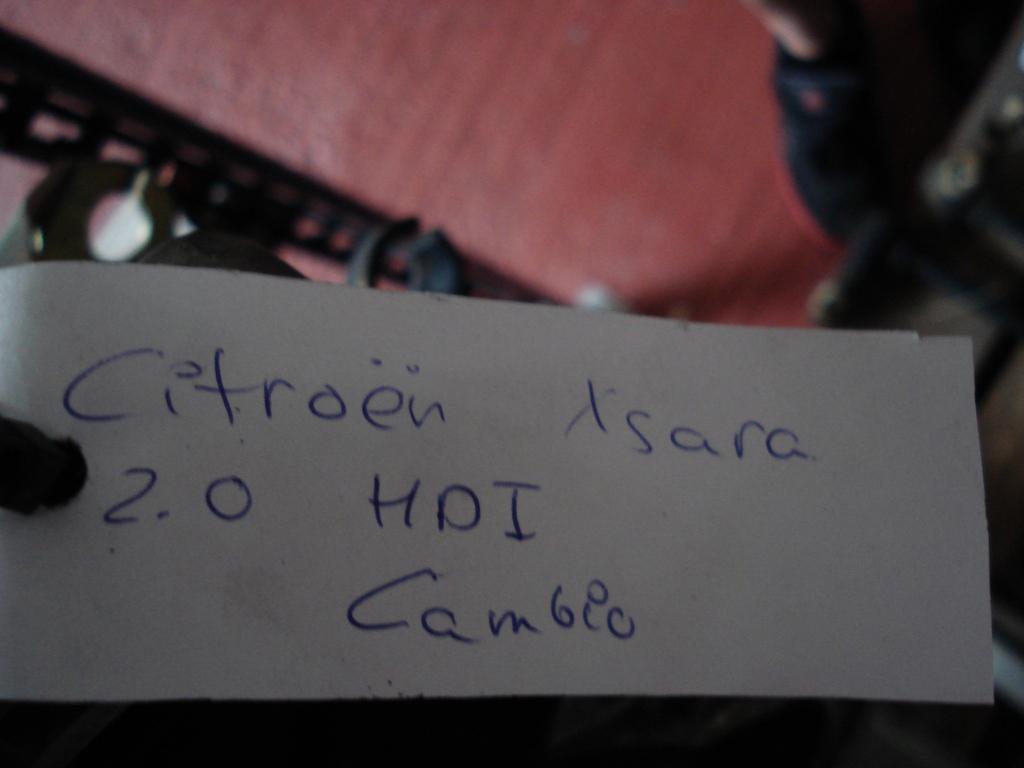 Citroën Xsara
2.0 HDI
Cambio